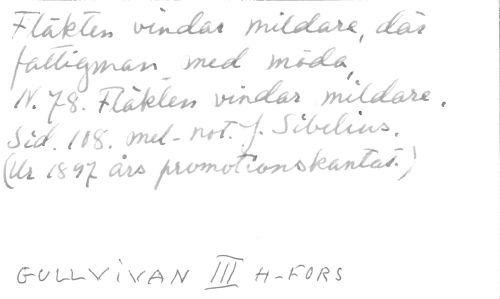 Fläkten vindar mildare, där
fattigman med möda,
N. 78. Fläkten vindar mildare.
Sid. 108. mel-not. J. Sibelius.
(Ur 1897 års promotionskantat.)
GULLVIVAN III H-FORS